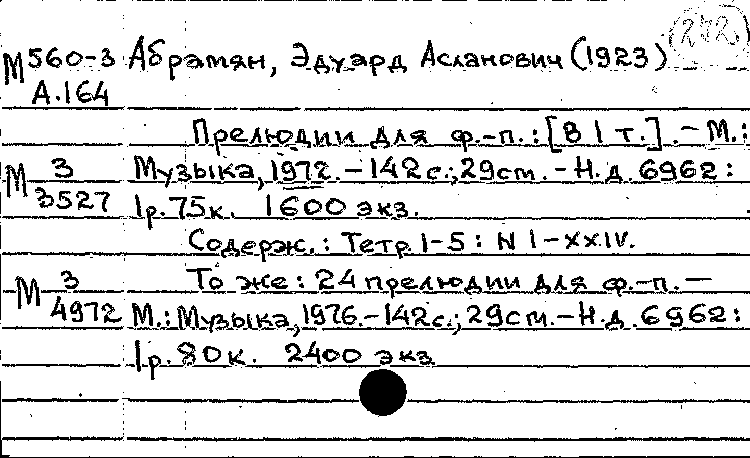 (272)
М 560-3 Абрамян, Эдуард Асланович (1923)
А.164
Прелюдии для ф.-п.: [В 1 т.]. – М.:
М 3 Музыка, 1972. – 142 с.; 29 ст. – Н.д. 6962:
3527 1р. 75 к. 1600 экз.
Содерж.: Тетр. 1-5: N I-XXIV.
М 3 То же: 24 прелюдии для ф.-п. –
4972 М.: Музыка, 1976. – 142 с.; 29 ст. – Н.д. 6962:
1р. 80 к. 2400 экз